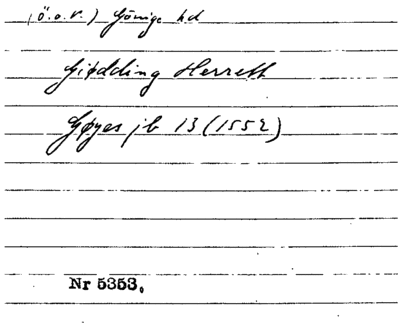 (ö.o.v.) Gönge hd
Giødding Herrett
Gøyes jb 13 (1552)
Nr 5353.